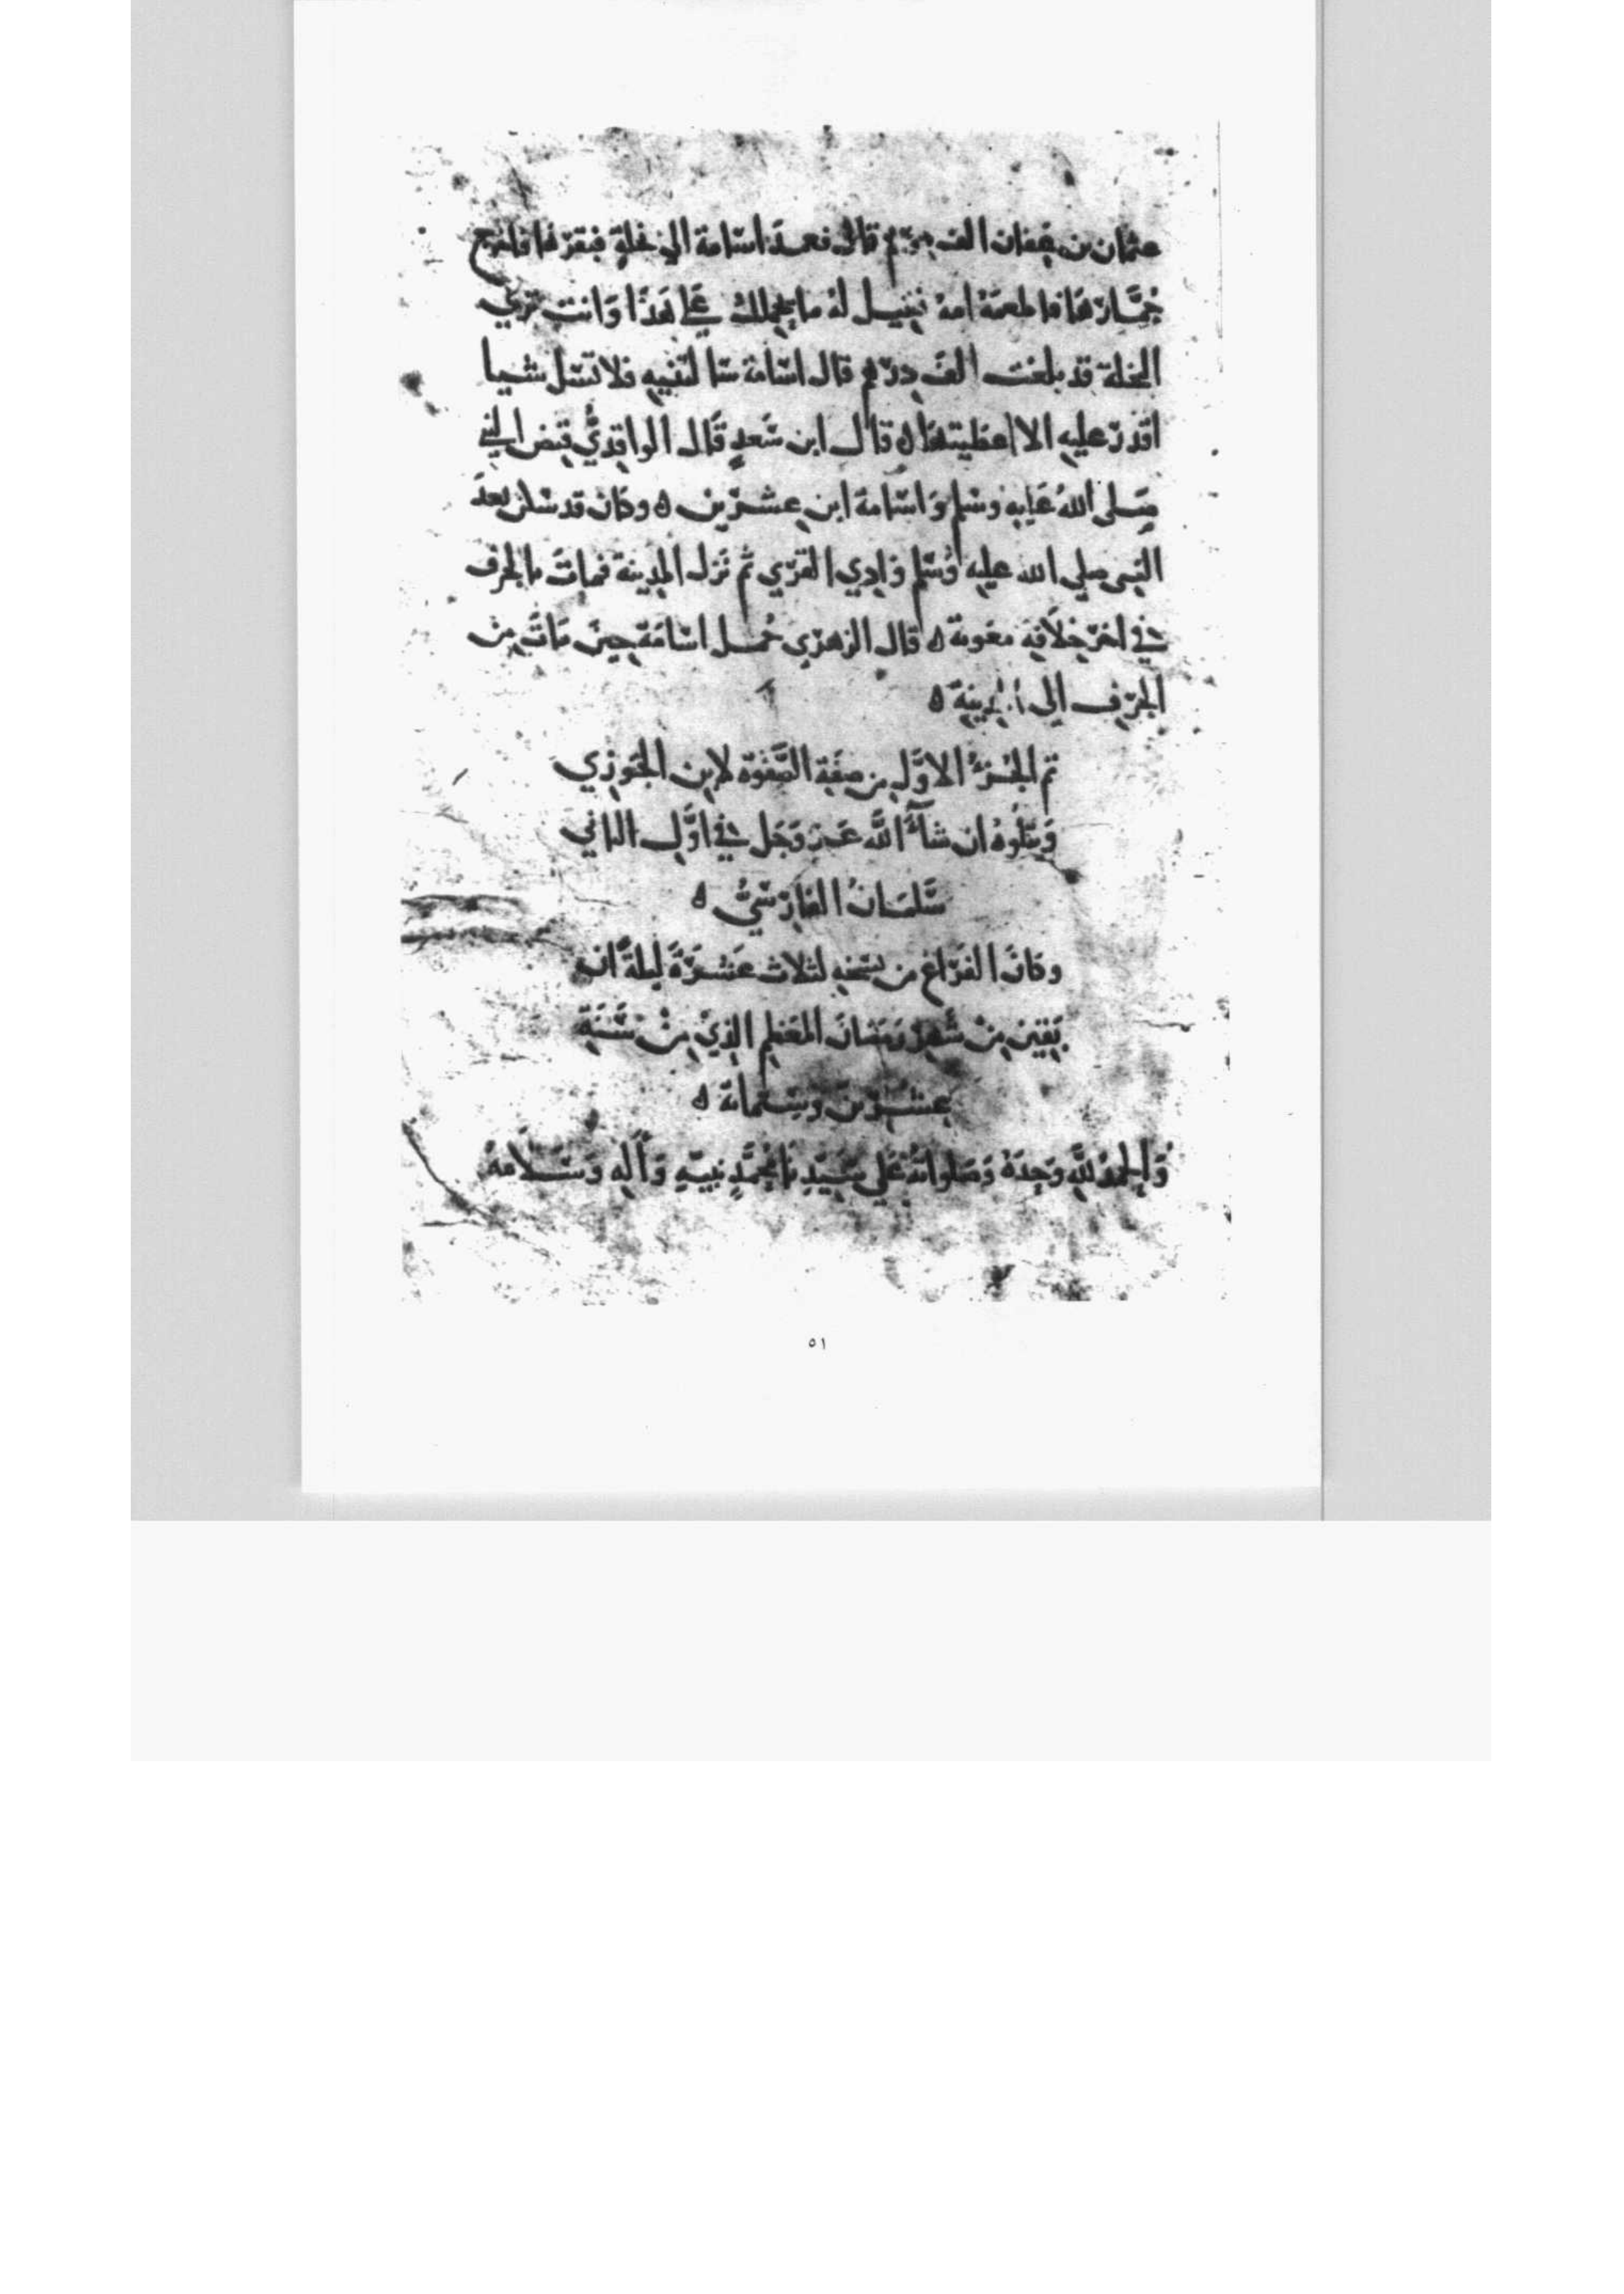 عثمان بن عفان الف درهم قال فعمدَ اسامة الي نخلةٍ فنقرَها فاخرج
جُمَّارَهَا فاطعمَهُ امهُ فقيل لهُ ما يحملك عَلي هَذَا وَانت تري
النخلة قد بلغت الفَ درهم قال اسَامة سَالتنيهِ فلا تسَل شيا
اقدرُ عليهِ الا اعطيتهَا ه قال ابن سَعدٍ قَال الواقديُّ قبض النبي
صَلى اللهُ عَليهِ وسَلم وَاسَامة ابن عشرين ه وكانَ قد سَكن بعدَ
النبي صلي الله عليه وسَلم وَادي القري ثم نَزل المدينة فماتَ بالجرف
في اخر خلاَفة معوية ه قال الزهري حُمل اسَامَة حينَ مَاتَ من
الجرف الى المدينة ه
تم الجُزءُ الاوَّل من صفَة الصَّفوة لابن الجَوزي
وَيتلُوهُ ان شآءَ اللَّه عَز وَجَل في اوَّل الثاني
سَّلمَانُ الفَارسيُّ ه
وكَانَ الفرَاغ من نسخهِ لثلاث عَشرَةَ ليلةً ان
بَقين منْ شَهر رَمضَانَ المعَظم الذي منْ سَنَةِ
عشرين وستمائة ه
وَالحمدُ للهِ وَحدَهُ وَصَلواتهُ عَلي سَيّدِنا مُحمَّدٍ نبيّهِ وَآلهِ وَسَلاَمهُ
٥١